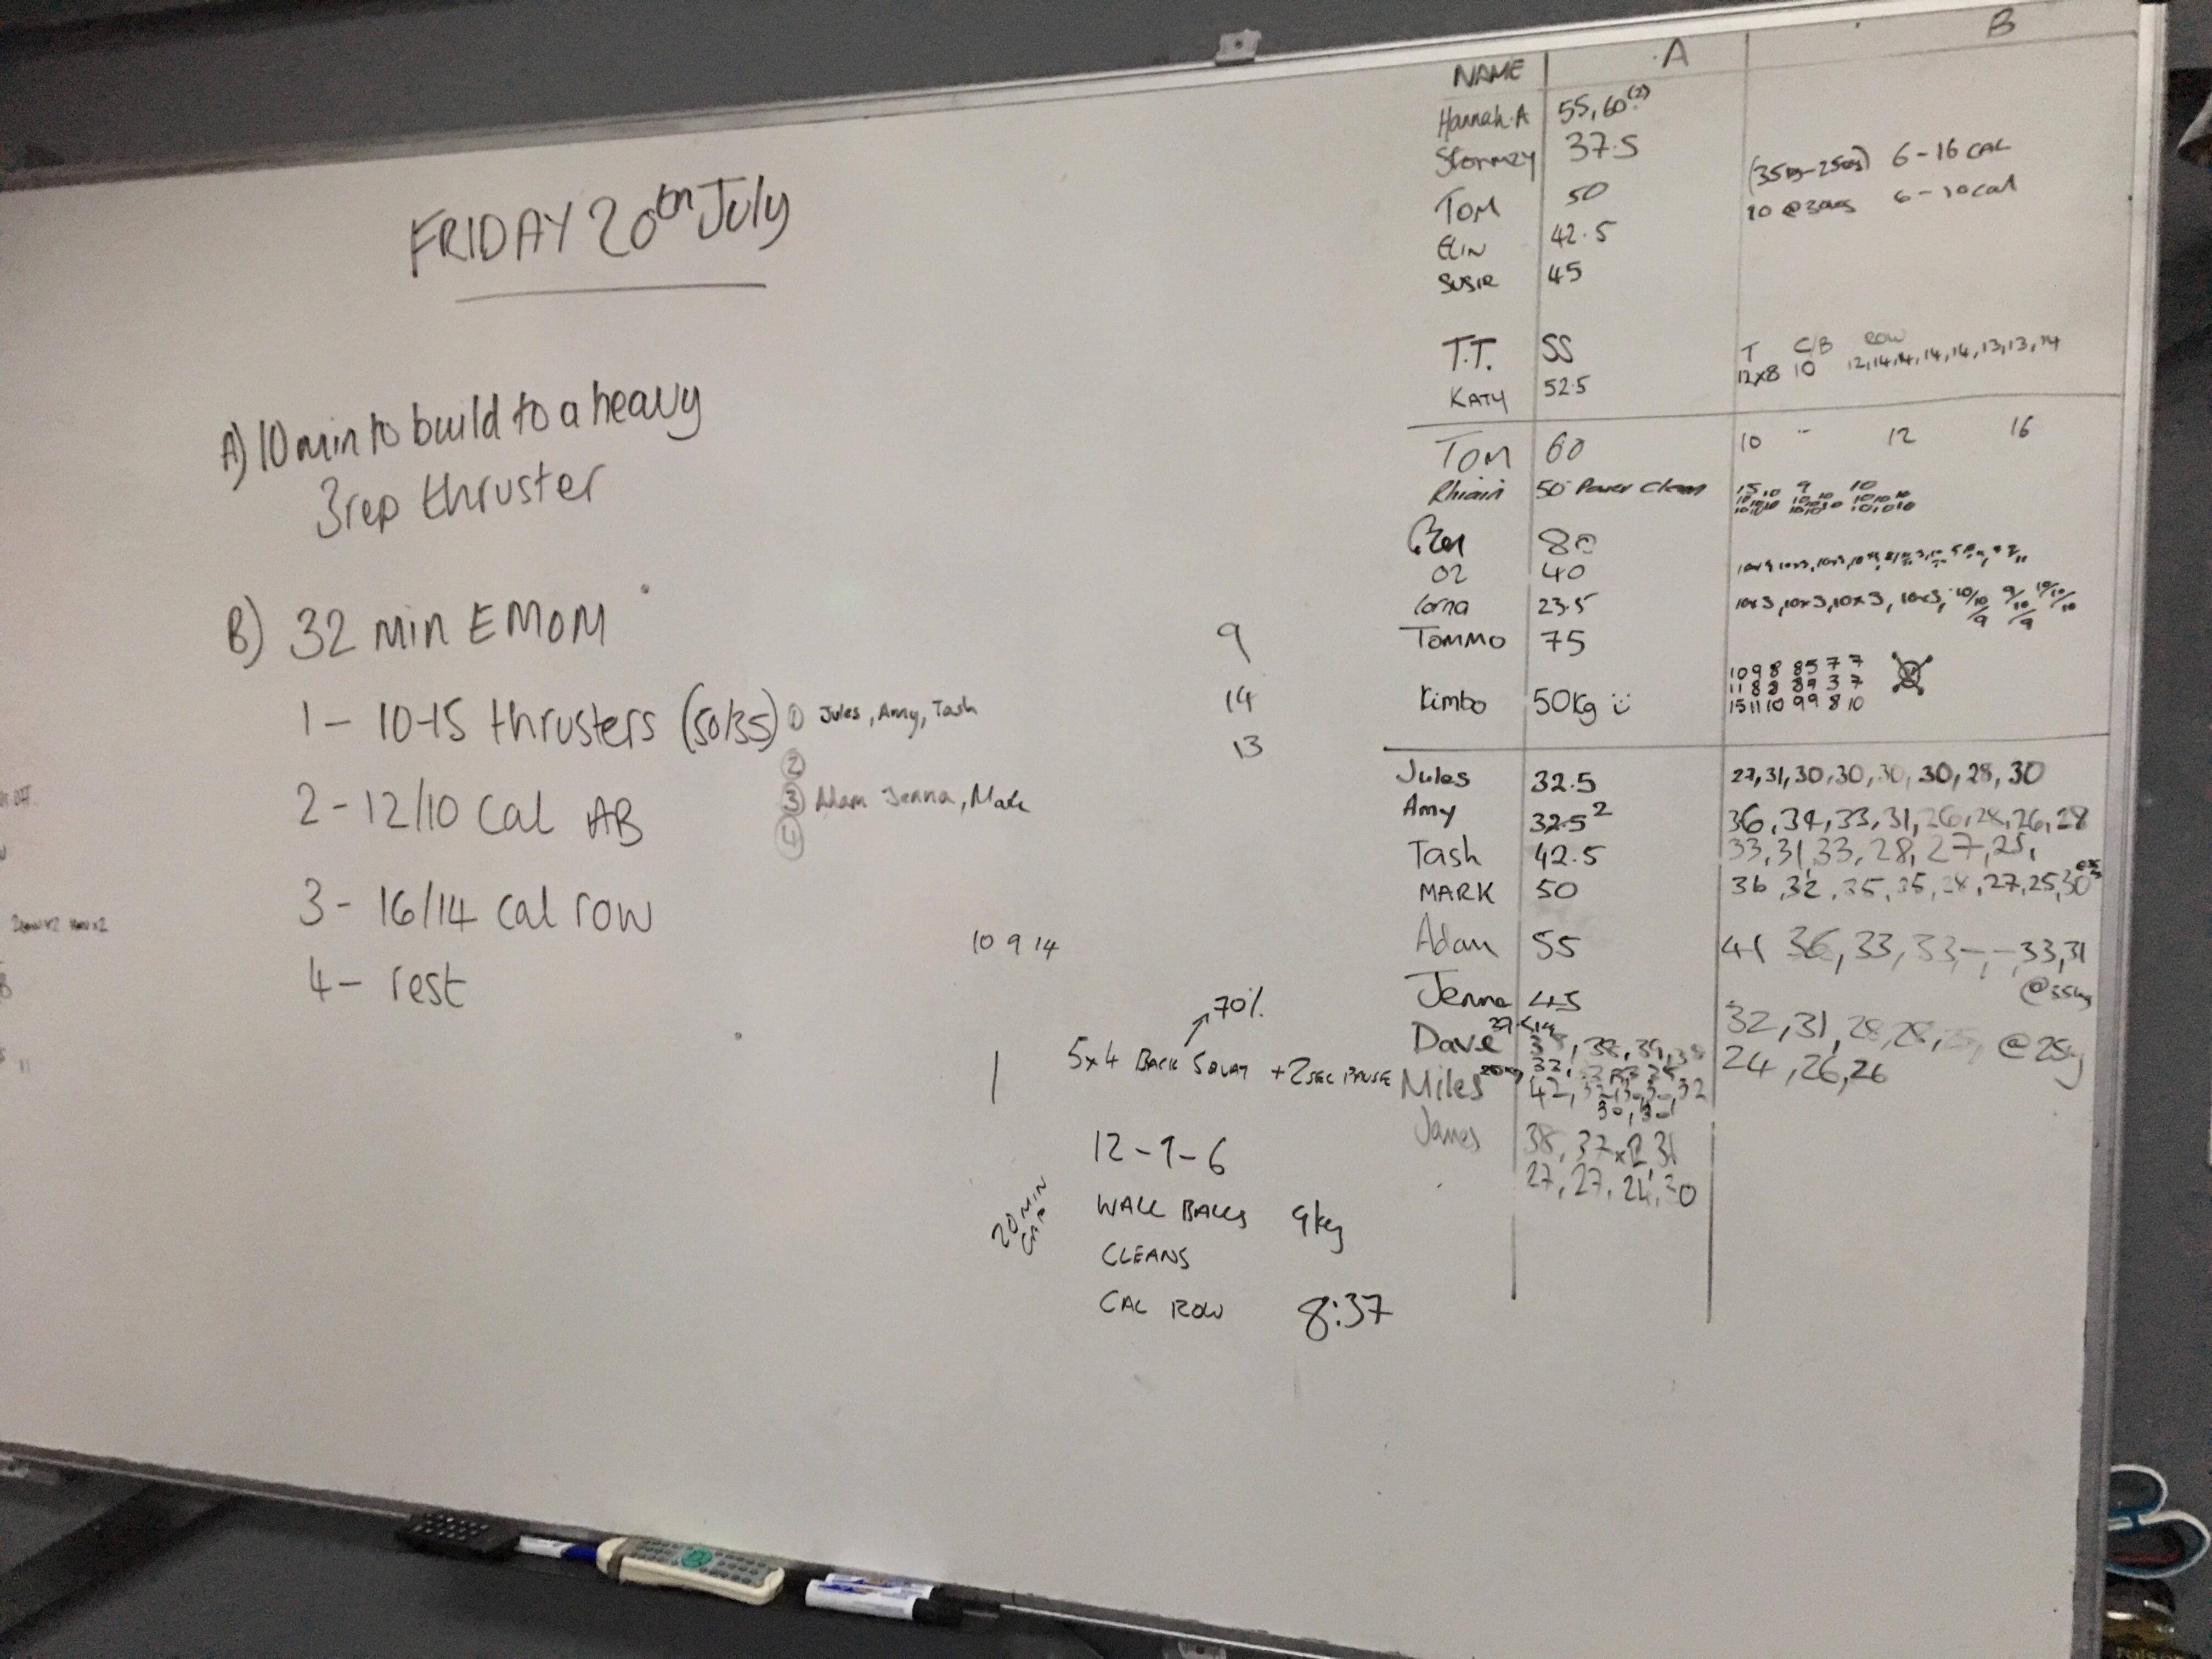 FRIDAY 20th July
A) 10 min to build to a heavy
3rep thruster
B) 32 min EMOM
1 - 10-15 thrusters (50/35)
2 - 12/10 Cal AB
3 - 16/14 Cal row
4 - rest
① Jules, Amy, Tash
②
③ Adam Jenna, Mark
④
9
14
13
10 9 14
70%
5x4 BACK SQUAT + 2SEC PAUSE
12-9-6
20 MIN
WALL BALLS 9kg
CLEANS
CAL ROW 8:37
NAME A B
Hannah.A 55, 60(2)
Stormzy 37.5
(35kg-25kg) 6-16 CAL
TOM 50
10 @30kg 6-10 Cal
ELIN 42.5
SUSIE 45
T C/B ROW
T.T. 55
12x8 10 12,14,14,14,14,13,13,14
KATY 52.5
TOM 60 10 - 12 16
Rhiain 50 Power Clean
Ben 80
OZ 40
Lorna 23.5 10x3, 10x3, 10x3, 10x3,
TOMMO 75
Kimbo 50kg
10 9 8 8 5 7 7
15 11 10 9 9 8 10
Jules 32.5 27, 31, 30, 30, 30, 30, 28, 30
Amy 32.5² 36, 34, 33, 31, 26, 28, 26, 28
Tash 42.5 33, 31, 33, 28, 27, 25,
MARK 50 36, 32, 25, 25, 28, 27, 25, 30
Adam 55 41 36, 33, 33 -, - 33, 31
@35kg
Jenna 45 32, 31, 28, 28, @25kg
24, 26, 26
Dave 38, 39, 38
Miles 42, 32
30, 30
James 38, 37x2, 31
27, 27, 24, 30